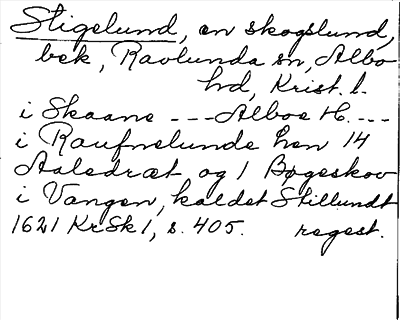 Stigelund, en skogslund,
bek, Ravlunda sn, Albo
hd, Krist. l.
i Skaane --- Alboe H. ---
i Raufnelunde hen 14
Aaledræt og 1 Bøgeskov
i Vangen, kaldet Stillundt
1621 KrSk 1, s. 405. regest.